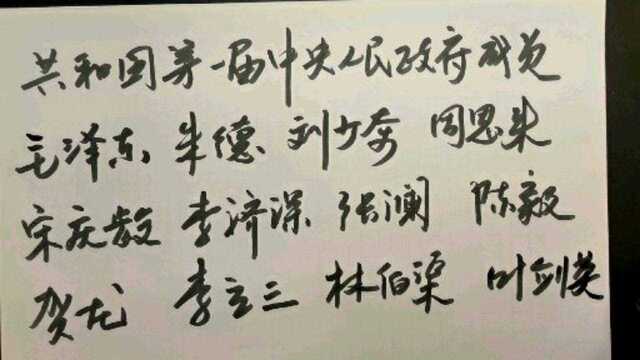 共和国第一届中央人民政府成员
毛泽东 朱德 刘少奇 周恩来
宋庆龄 李济深 张澜 陈毅
贺龙 李立三 林伯渠 叶剑英